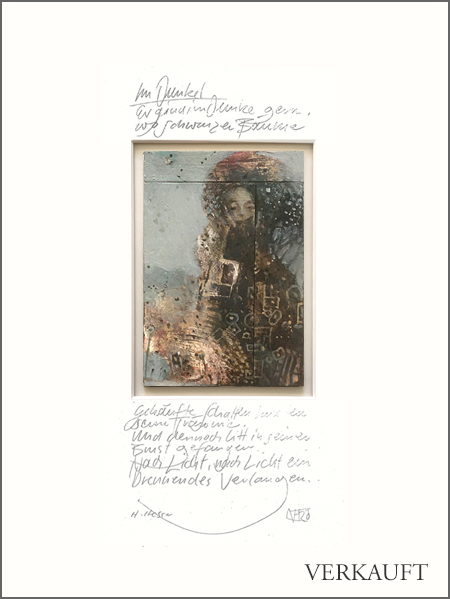 Im Dunkel
Er ging im Dunkel gern,
wo schwarzer Bäume
Gehäufte Schatten
seine Träume.
Und dennoch litt in seiner
Brust gefangen
Nach Licht, nach Licht ein
brennendes Verlangen.
H. Hesse
VERKAUFT